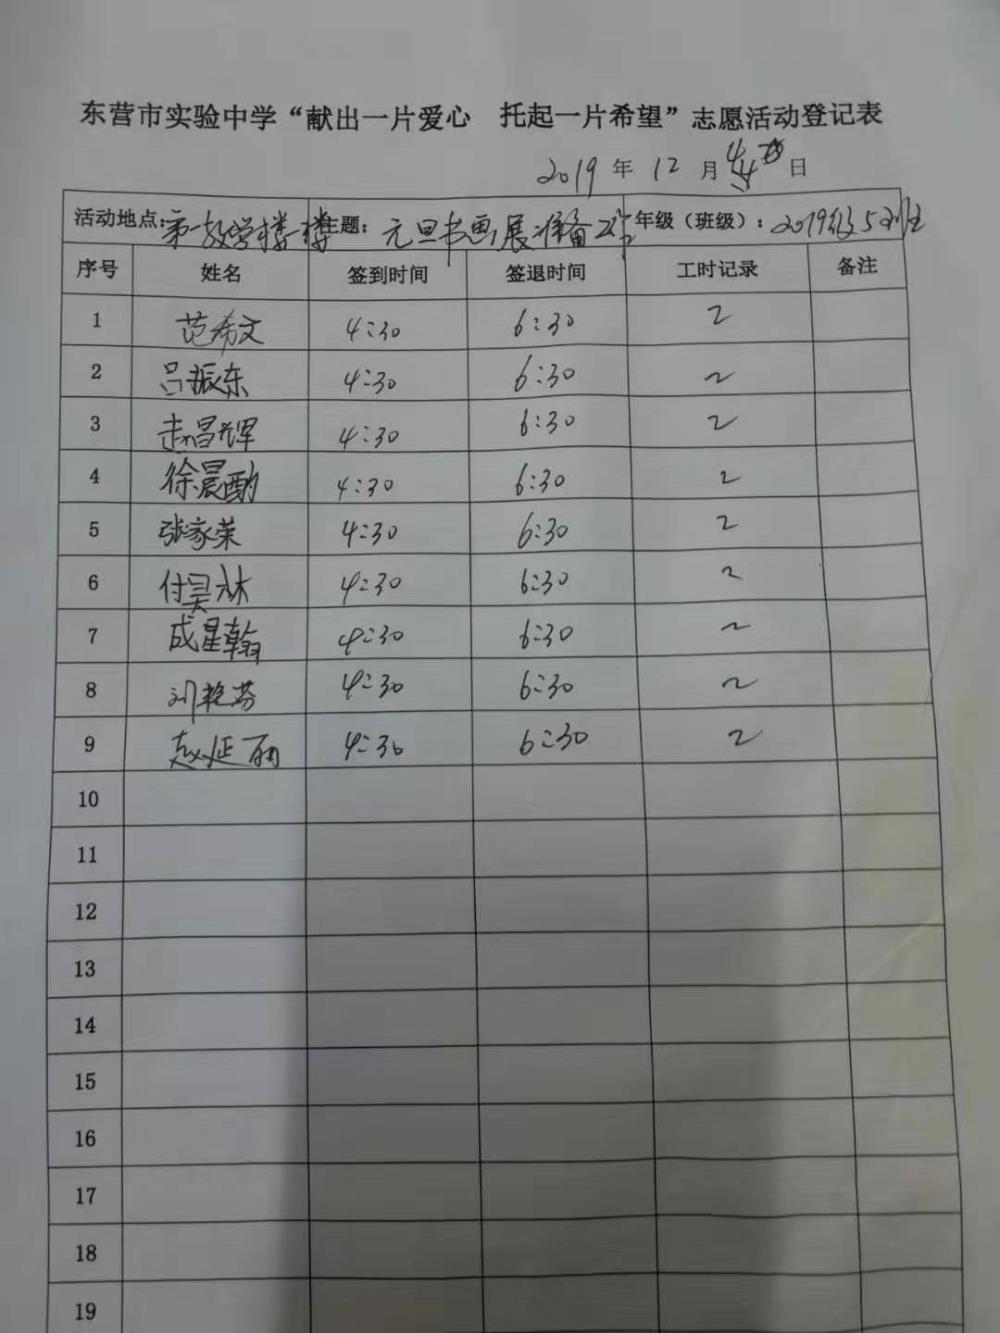 东营市实验中学“献出一片爱心 托起一片希望”志愿活动登记表
2019年12月 日
活动地点：第一教学楼楼 主题：元旦书画展准备工作 年级（班级）：2019级5班
序号 姓名 签到时间 签退时间 工时记录 备注
1 范希文 4:30 6:30 2
2 吕振东 4:30 6:30 2
3 赵昌辉 4:30 6:30 2
4 徐晨酌 4:30 6:30 2
5 张家荣 4:30 6:30 2
6 付昊林 4:30 6:30 2
7 成星翰 4:30 6:30 2
8 刘艳芬 4:30 6:30 2
9 赵延丽 4:30 6:30 2
10
11
12
13
14
15
16
17
18
19